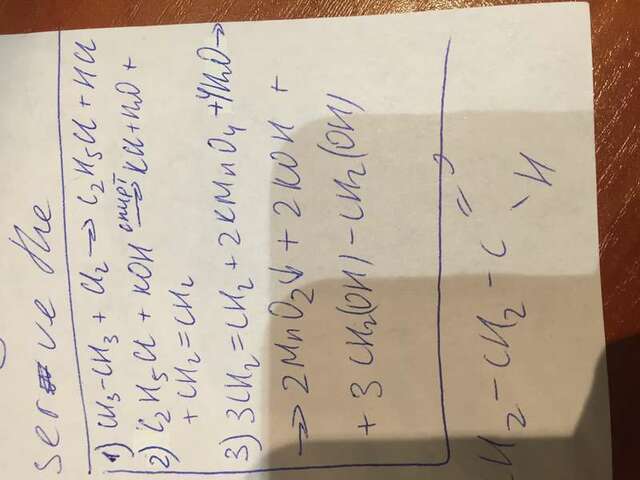 serve the
1) CH3-CH3 + Cl2 → C2H5Cl + HCl
2) C2H5Cl + KOH спирт→ KCl + H2O +
+ CH2=CH2
3) 3CH2=CH2 + 2KMnO4 + 4H2O →
→ 2MnO2↓ + 2KOH +
+ 3CH2(OH)-CH2(OH)
H2-CH2-C
H